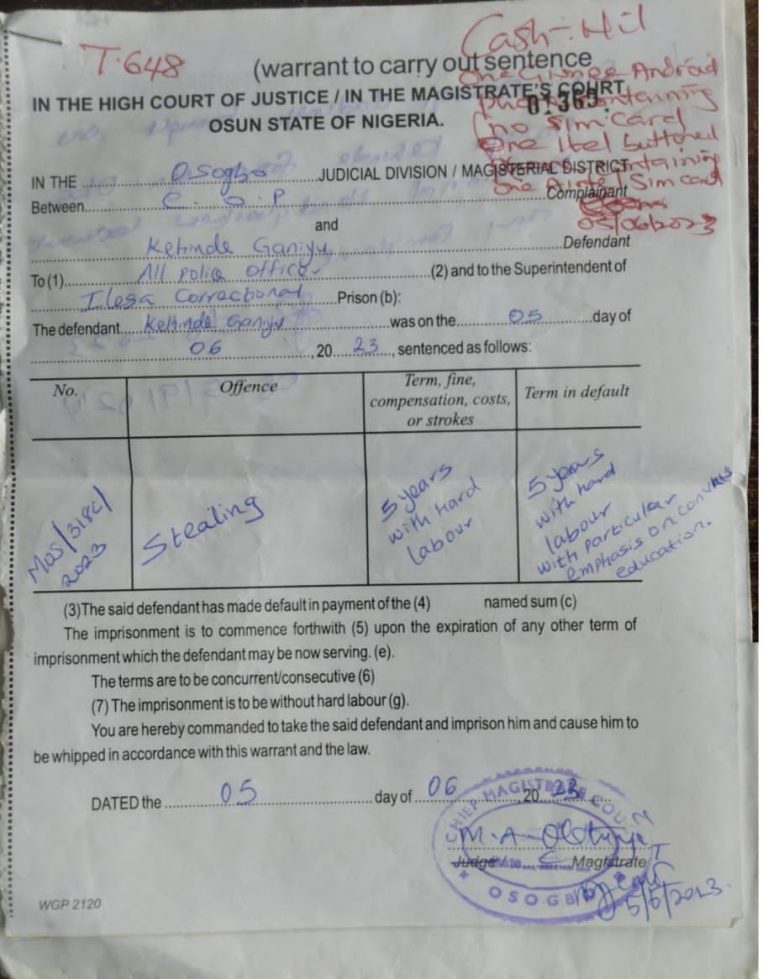 T.648
Cash:- Nil
(warrant to carry out sentence
One Orange Android
IN THE HIGH COURT OF JUSTICE / IN THE MAGISTRATE'S COURT
01365
containing
OSUN STATE OF NIGERIA.
(no sim card
One itel buttoned
IN THE Osogbo JUDICIAL DIVISION / MAGISTERIAL DISTRICT
containing
Between C. O. P Complainant
One Airtel Sim card
05/06/2023
and
Kehinde Ganiyu Defendant
To (1) All Police Officer (2) and to the Superintendent of
Ilesa Correctional Prison (b):
The defendant Kehinde Ganiyu was on the 05 day of
06, 20 23, sentenced as follows:
No. Offence Term, fine, compensation, costs, or strokes Term in default
MOS/318C/2023 Stealing 5 years with hard labour 5 years with hard labour with particular emphasis on convicts education.
(3)The said defendant has made default in payment of the (4) named sum (c)
The imprisonment is to commence forthwith (5) upon the expiration of any other term of
imprisonment which the defendant may be now serving. (e).
The terms are to be concurrent/consecutive (6)
(7) The imprisonment is to be without hard labour (g).
You are hereby commanded to take the said defendant and imprison him and cause him to
be whipped in accordance with this warrant and the law.
DATED the 05 day of 06, 20 23
CHIEF MAGISTRATE COURT
M. A.
Judge Magistrate
OSOGBO
5/6/2023.
WGP 2120